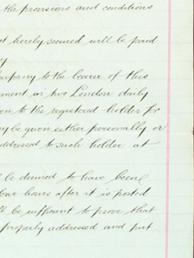 the provisions and conditions
hereby secured will be paid
by
company to the bearer of this
in two London daily
to the registered holder
be given either personally or
addressed to such holder at
be deemed to have been
hours after it is posted
be sufficient to prove that
properly addressed and put